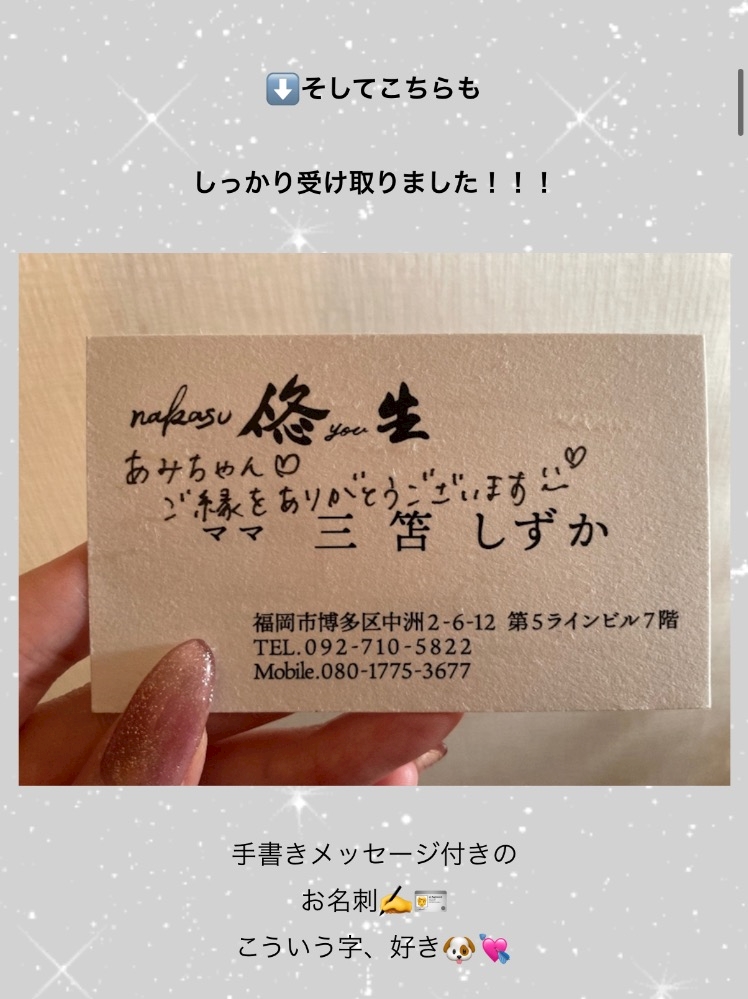 ⬇️そしてこちらも
しっかり受け取りました！！！
nakasu 悠you生
あみちゃん♡
ご縁をありがとうございます♡
ママ 三笘 しずか
福岡市博多区中洲2-6-12 第5ラインビル7階
TEL.092-710-5822
Mobile.080-1775-3677
手書きメッセージ付きの
お名刺✍️🪪
こういう字、好き🐶💘